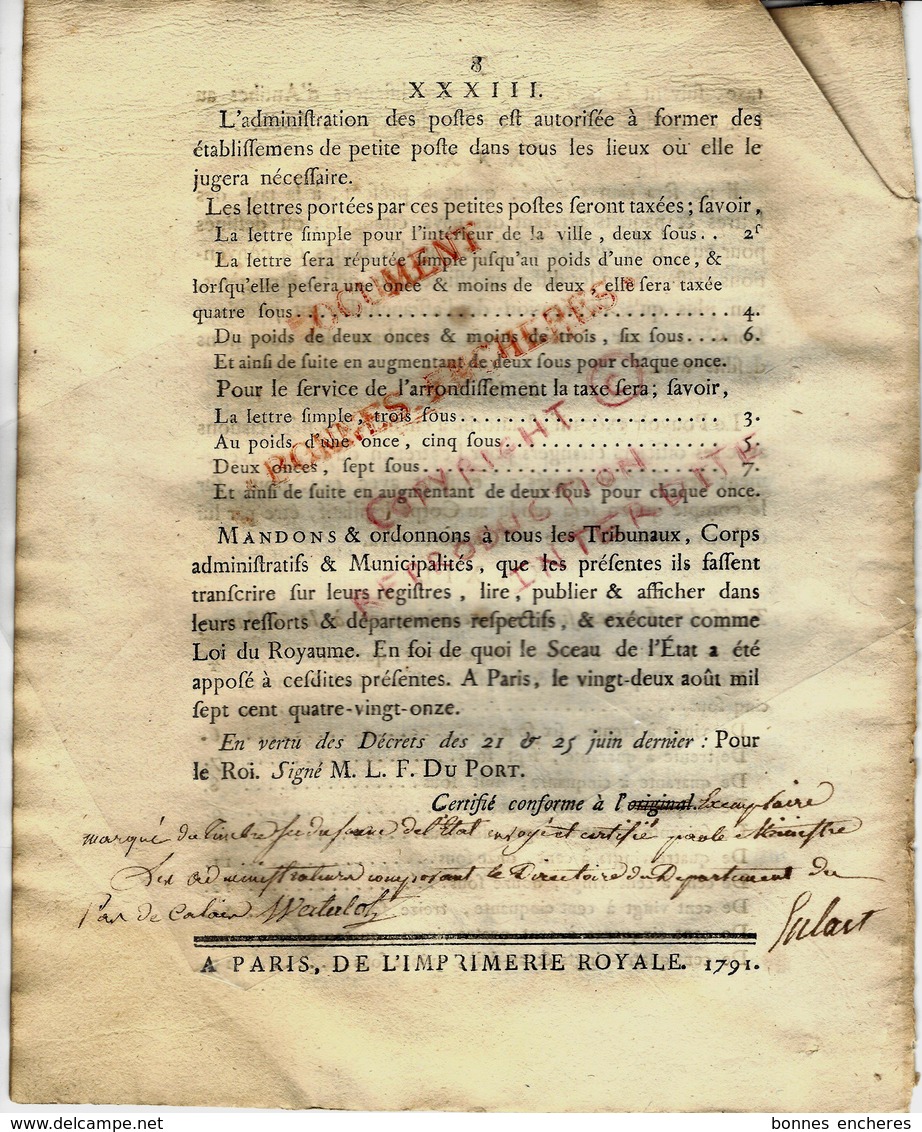 8
XXXIII.
L'adminiſtration des poſtes eſt autoriſée à former des
établiſſemens de petite poſte dans tous les lieux où elle le
jugera néceſſaire.
Les lettres portées par ces petites poſtes ſeront taxées ; ſavoir,
La lettre ſimple pour l'intérieur de la ville, deux ſous.. 2ſ
La lettre ſera réputée ſimple juſqu'au poids d'une once, &
lorſqu'elle peſera une once & moins de deux, elle ſera taxée
quatre ſous.................................................. 4.
Du poids de deux onces & moins de trois, ſix ſous.... 6.
Et ainſi de ſuite en augmentant de deux ſous pour chaque once.
Pour le ſervice de l'arrondiſſement la taxe ſera ; ſavoir,
La lettre ſimple, trois ſous.............................. 3.
Au poids d'une once, cinq ſous......................... 5.
Deux onces, ſept ſous................................... 7.
Et ainſi de ſuite en augmentant de deux ſous pour chaque once.
MANDONS & ordonnons à tous les Tribunaux, Corps
adminiſtratifs & Municipalités, que les préſentes ils faſſent
tranſcrire ſur leurs regiſtres, lire, publier & afficher dans
leurs reſſorts & départemens reſpectifs, & exécuter comme
Loi du Royaume. En foi de quoi le Sceau de l'État a été
appoſé à ceſdites préſentes. A Paris, le vingt-deux août mil
ſept cent quatre-vingt-onze.
En vertu des Décrets des 21 & 25 juin dernier : Pour
le Roi. Signé M. L. F. DU PORT.
Certifié conforme à l'original. Exemplaire
marqué du timbre du sceau de l'Etat envoyé et certifié par le Ministre
Les administrateurs composant le Directoire du Departement du
Pas de Calais
A PARIS, DE L'IMPRIMERIE ROYALE. 1791.
DOCUMENT
BONNES ENCHERES
COPYRIGHT ©
REPRODUCTION
INTERDITE
bonnes encheres